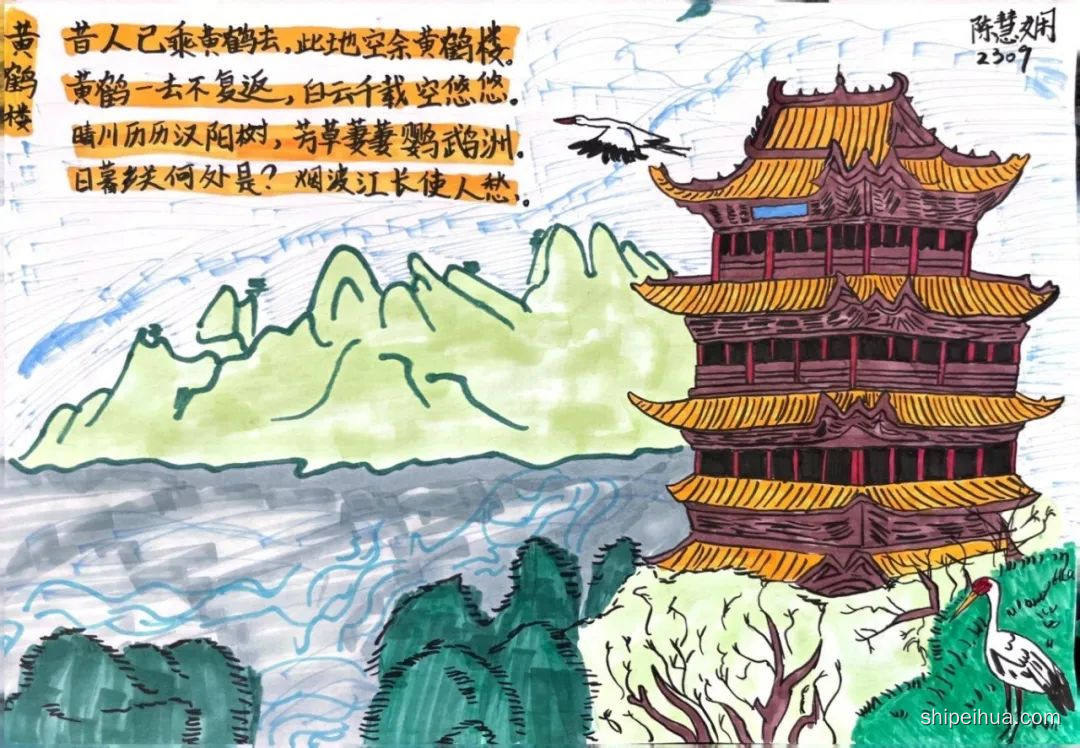 黄鹤楼
昔人已乘黄鹤去,此地空余黄鹤楼。
黄鹤一去不复返,白云千载空悠悠。
晴川历历汉阳树,芳草萋萋鹦鹉洲。
日暮乡关何处是?烟波江长使人愁。
陈慧娴
2309
shipeihua.com